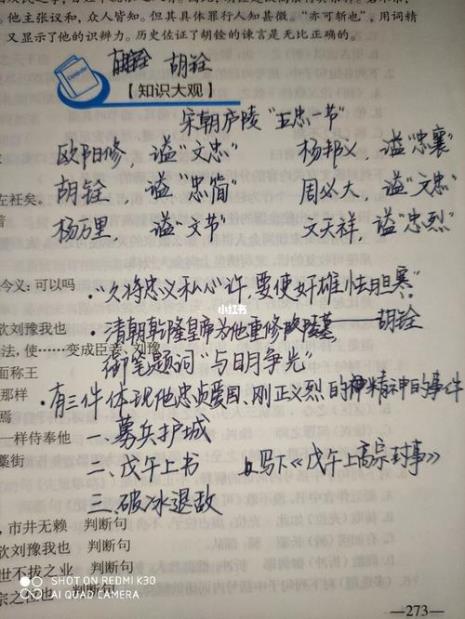 他主张议和，众人皆知。但其具体罪行人知甚微。“亦可斩也”，用词精
又显示了他的识辨力。历史佐证了胡铨的谏言是无比正确的。
胡铨 胡铨
【知识大观】
宋朝庐陵“五忠一节”
欧阳修，谥“文忠” 杨邦义，谥“忠襄”
胡铨， 谥“忠简” 周必大，谥“文忠”
杨万里， 谥“文节” 文天祥，谥“忠烈”
左衽矣。
今义：可以吗
·“久将忠义私心许，要使奸雄怯胆寒”
小红书
欲刘豫我也
·清朝乾隆皇帝为他重修陵墓——胡铨
法，使……变成臣妾 刘豫
面称王
御笔题词“与日月争光”
那样
·有三件体现他忠贞爱国、刚正义烈的精神的事件
焉
一样侍奉他
一、募兵护城
藁街
二、戊午上书 写下《戊午上高宗封事》
三、破冰退敌
，市井无赖 判断句
欲刘豫我也 判断句
世不拔之业 判断句
宗之位也 判断句
SHOT ON REDMI K30
AI QUAD CAMERA
—273—